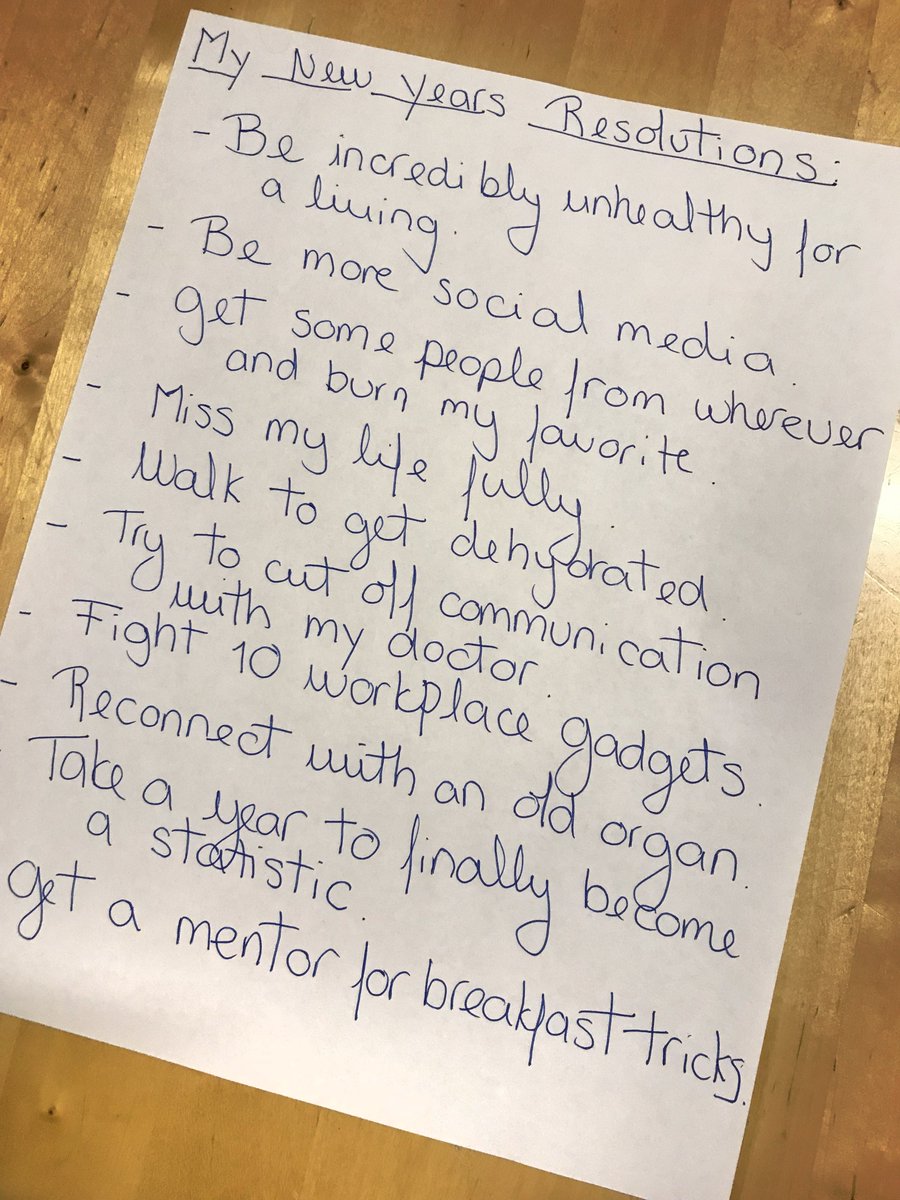 My New Years Resolutions:
- Be incredibly unhealthy for
a living.
- Be more social media.
- get some people from wherever
and burn my favorite.
- Miss my life fully.
- Walk to get dehydrated.
- Try to cut off communication
with my doctor.
- Fight 10 workplace gadgets.
- Reconnect with an old organ.
- Take a year to finally become
a statistic.
get a mentor for breakfast tricks.